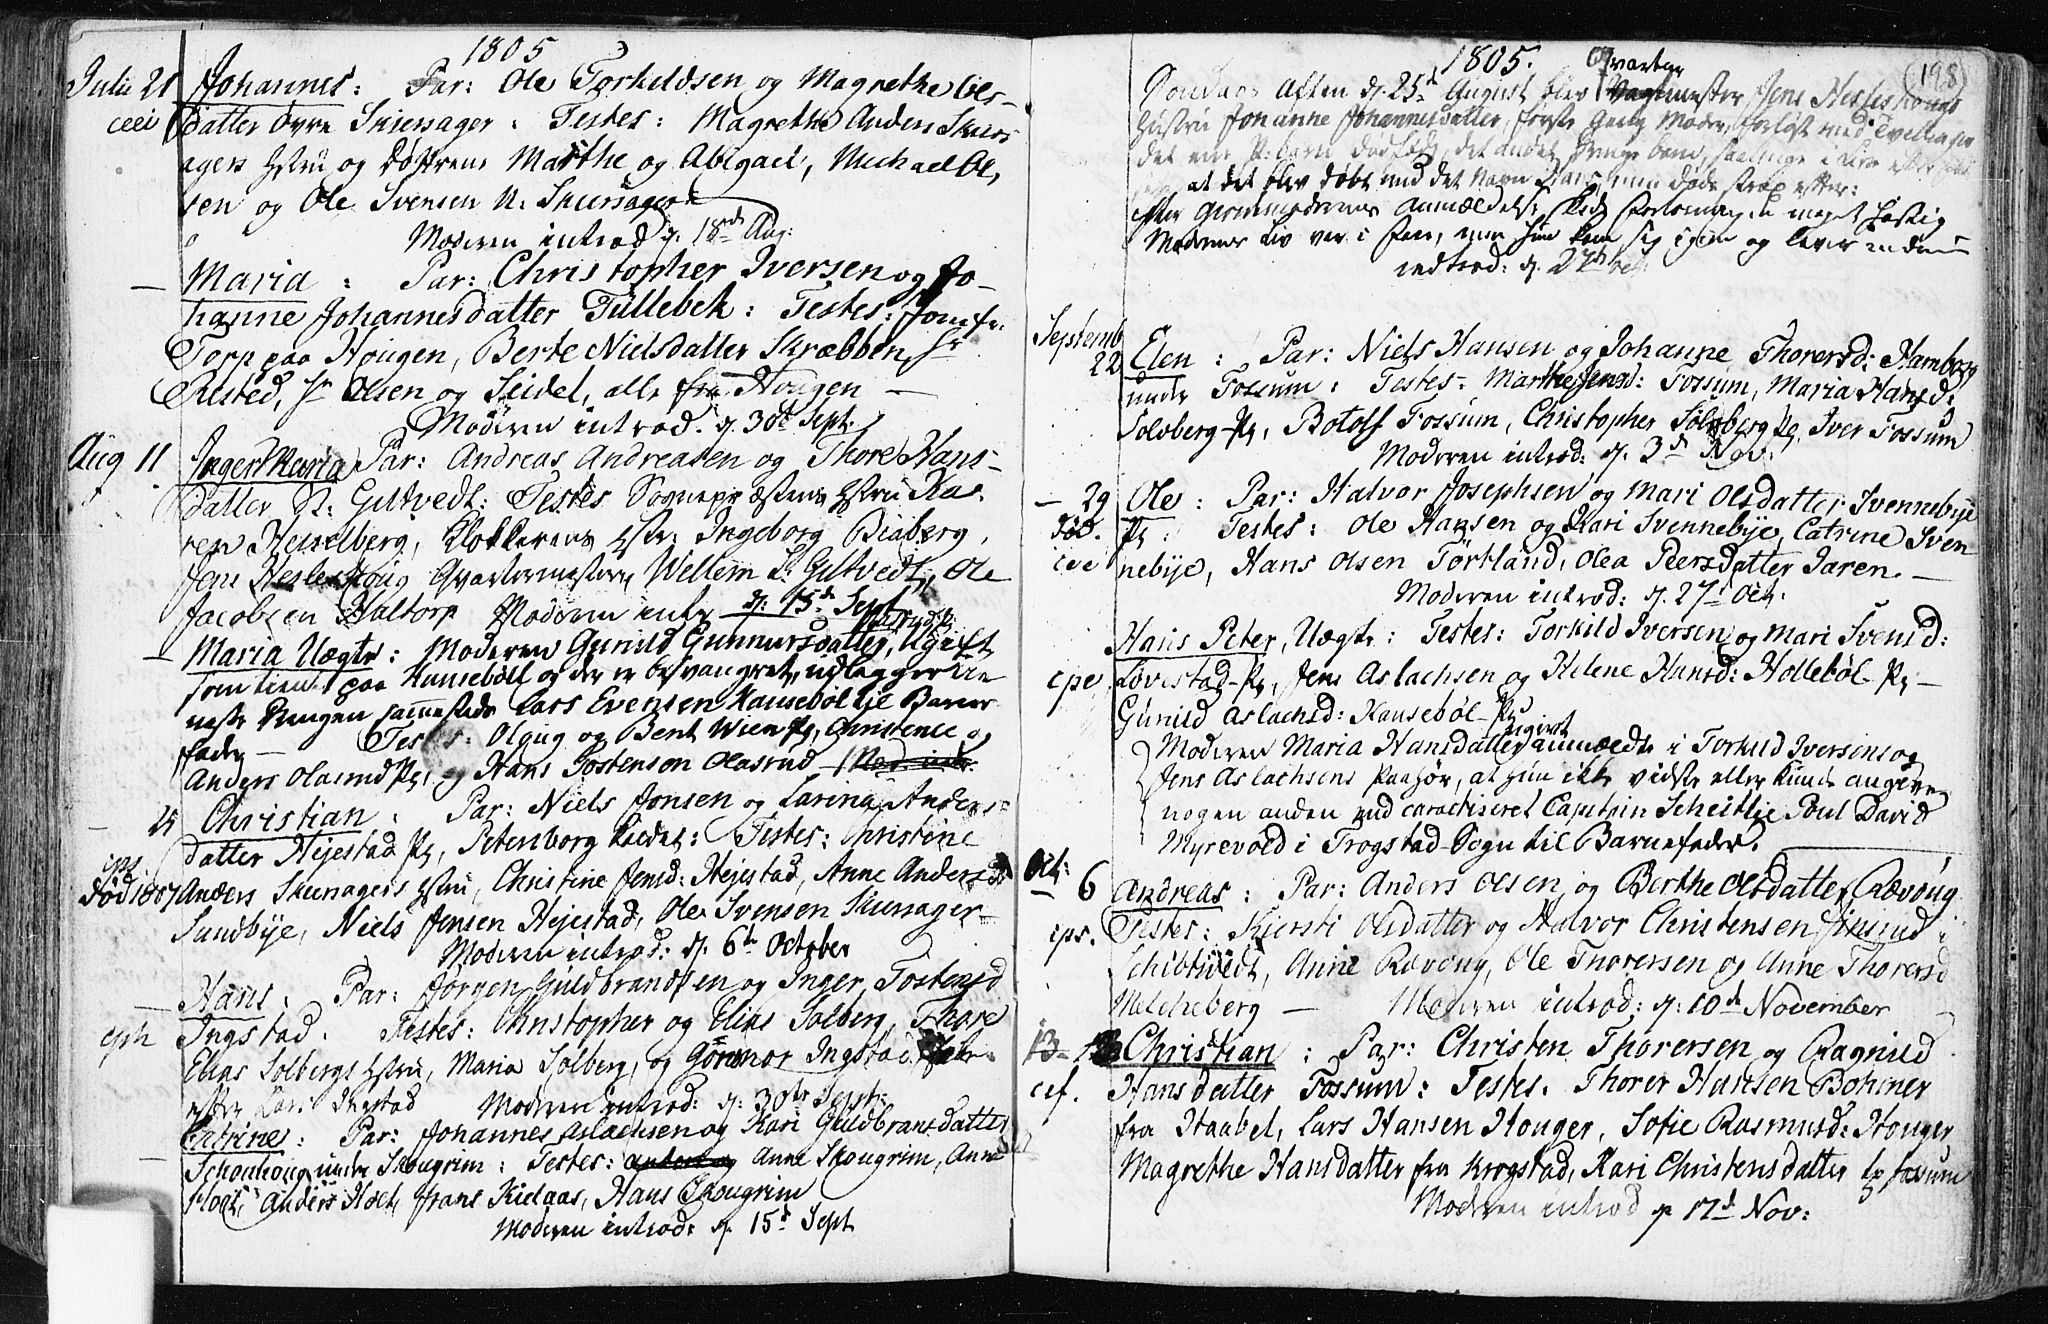 1805
Julii 21 Johannes: Par: Ole Torkeldsen og Magrethe Ols-
datter Øvre Skiersager: Testes: Magrethe Anders Skiers
agers Hstru og Døttrene Marthe og Abigael, Michael Ol,
sen og Ole Svensen N: Skiersager
Moderen introd d. 18de Aug:
Maria: Par: Christopher Iversen og Jo-
hanne Johannesdatter Tullebek: Testes: Jomfr.
Torp paa Hougen, Berte Nielsdatter Skræbben, Hr
Rested, Hr Olsen og Seidel, alle fra Hougen
Moderen introd. d. 30te Sept.
Aug 11 Inger Maria Par: Andreas Andreasen og Thore Hans-
datter N: Giltvedt: Testes Sognepræstens Hstru Ka-
ren Hesselberg, Klokkerens Hstr: Ingeborg Biaberg,
Jens Hesleshoug Qvartermester, Willem L: Giltvedt, Ole
Jacobsen Haltorp Moderen intr d: 15de Sept
Maria Uægte: Moderen Gunild Gunnersdatter, Ugift
som tient paa Hansebøll og der er besvangret, udlægger
Drengen sammesteds Lars Evensen Hansebøl til Barne
fader Testes: Olgug og Bent Wien Pg, Christence og
Anders Olasrud Pg, og Hans Tostenson Olasrud
25 Christian. Par: Niels Jonsen og Larina Anders-
datter Hejestad Pg, Petersborg kaldet: Testes: Christine
død 1807 Anders Skiersagers Hstru, Christine Jensd: Hejestad, Anne Andersd
Sundbye, Niels Jensen Hejestad, Ole Svensen Skiersager
Moderen introd: d. 6te October
Hans. Par: Jørgen Guldbrandsen og Inger Tostensd
Ingstad. Testes: Christopher og Elias Solberg, Thore
Elias Solbergs Hstru, Maria Solberg, og Gunnor Ingstad
Kari Ingstad Moderen introd: d: 30te Septr:
Catrine: Par: Johannes Aslachsen og Kari Guldbransdatter
Schouhoug under Skougrim: Testes: Anne Skougrim, Anne
Hoel, Anders Hoel, Frans Kielaas, Hans Skougrim
Moderen introd: d. 15de Sept
1805.
198
Qvarter
Søndags Aften d. 25de August blev mester Jens Hesleshougs
Hustru Johanne Johannesdatter, første Gang Moder, forløst med Tvillinger
det ene P: barn dødfødt, det andet Drenge barn, saalenge i live efter
at det blev døbt med det Navn Hans, men døde strax efter:
efter Giordemoderens Anmeldelse skede Forløsningen meget hastig
Moderens Liv var i Fare, men hun kom sig igien og lever endnu
introd: d. 27de
Septemb
22 Elen: Par: Niels Hansen og Johanne Thorersd: Hamborg
under Fossum: Testes: Marthe Jensd: Fossum, Maria Hansd:
Solsberg Pg, Botolf Fossum, Christopher Solsberg Pg, Iver Fossum
Moderen introd: d. 3de Nov:
29 Ole: Par: Halvor Josephsen og Mari Olsdatter Svennebye
Pg: Testes: Ole Hansen og Kari Svennebye, Catrine Sven
nebye, Hans Olsen Törtland, Olea Peersdatter Jaren.
Moderen introd: d. 27de Oct.
Hans Peter, Uægte: Testes: Torkild Iversen og Mari Svensd:
Løvestad Pg, Jens Aslachsen og Helene Hansd: Hollebøl Pg
Gunild Aslachsd: Hansebøl Pg
Moderen Maria Hansdatter ugivt anmældte i Torkild Iversens og
Jens Aslachsens Paahør, at hun ikke vidste eller kunde angive
nogen anden end caractiseret Capitain Scheitlie Poul David
Myrevold i Trogstad Sogn til Barnefader.
Oct:
6 Andreas: Par: Anders Olsen og Berthe Olsdatter Rævoug
Testes: Kiersti Olsdatter og Halvor Christensen
Schibtvedt, Anne Rævoug, Ole Thorersen og Anne Thorersd
Melcheberg Moderen introd: d: 10de November
13 Christian: Par: Christen Thorersen og Ragnild
Hansdatter Fossum: Testes. Thorer Hansen Bohmer
fra Haabel, Lars Hansen Houger, Sofie Rasmusd: Houger
Magrethe Hansdatter fra Krogstad, Kari Christensdatter Fossum
Moderen introd d 17de Nov: